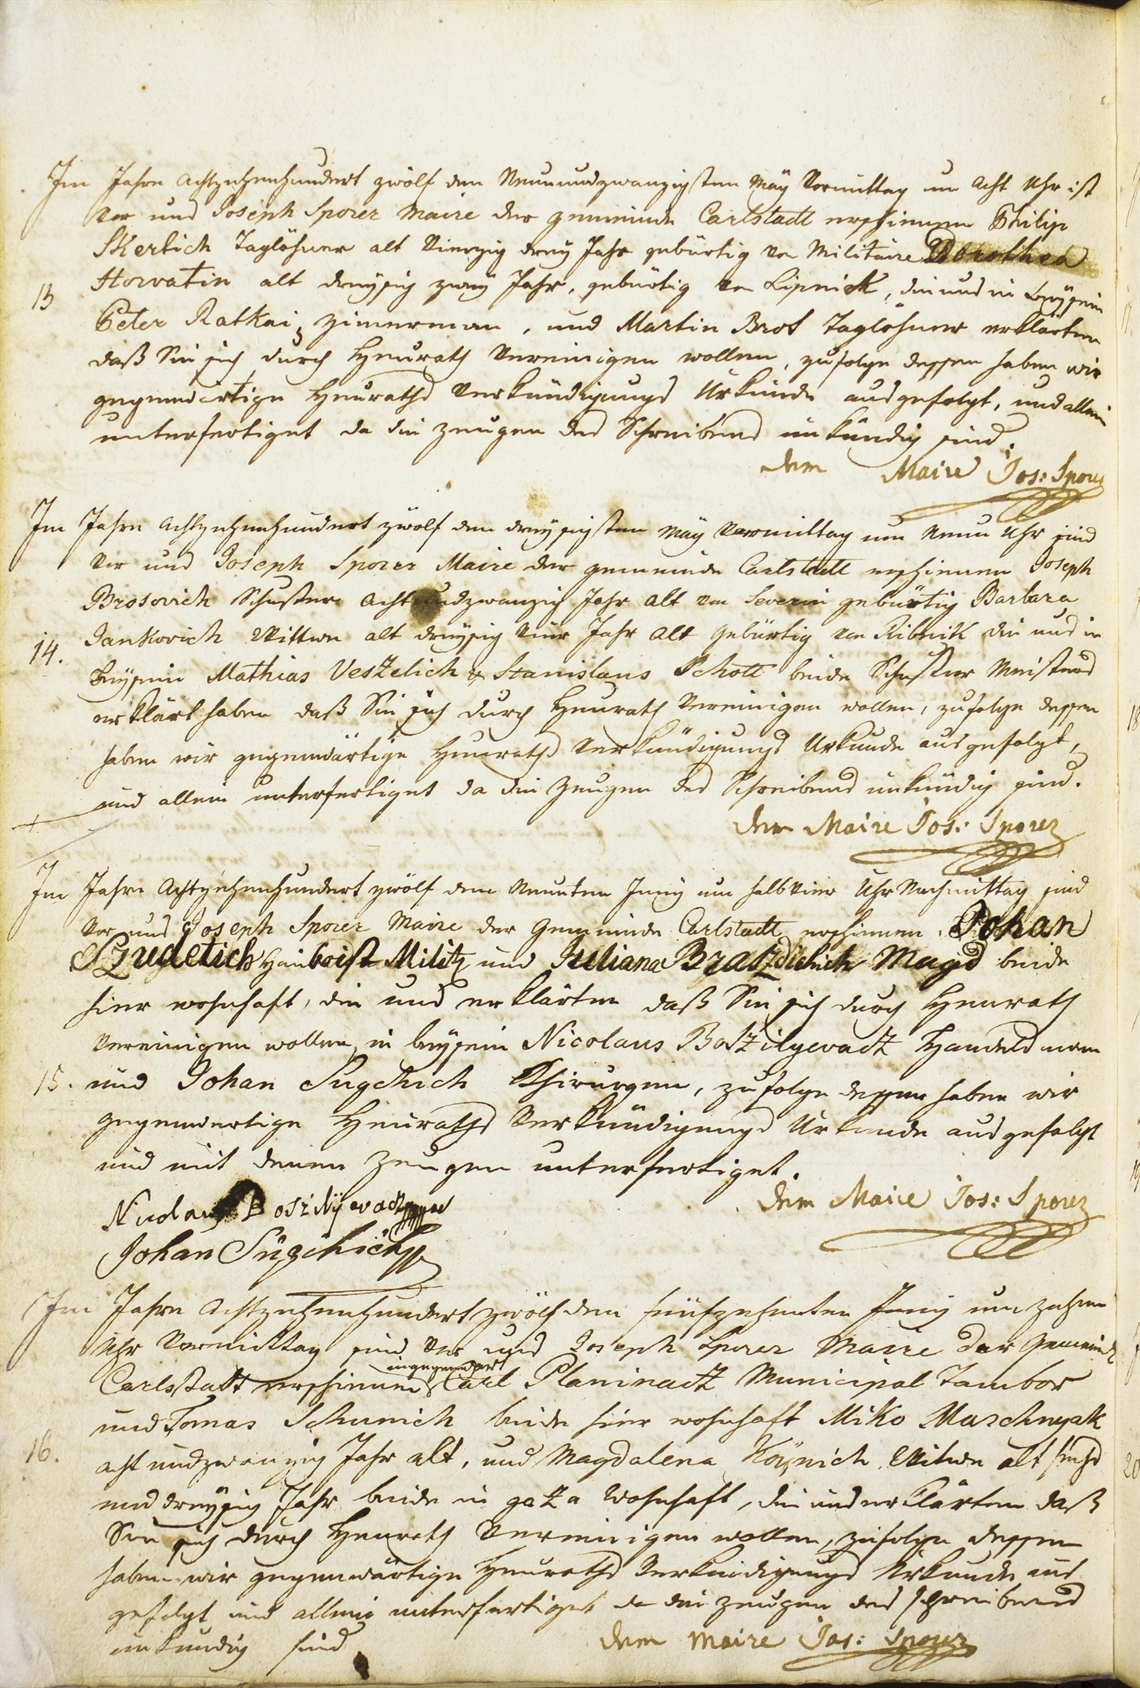 Im Jahre Achtzehenhundert zwölf den Neunundzwanzigsten Maÿ Vormittag um Acht Uhr ist
Vor uns Joseph Sporer Maire der gemeinde Carlstadt erschienen Philip
Skerlich Taglöhner alt Vierzig dreÿ Jahr gebürtig von Militaire Dorothea
Horvatin alt dreÿsig zweÿ Jahr, gebürtig von Lipnick, die uns in Beÿsein
13
Peter Ratkai, Zimerman, und Martin Bros Taglöhner erklärten
daß Sie sich durch Heurath Vereinigen wollen, zufolge dessen haben wir
gegenwärtige Heuraths Verkündigungs Urkunde ausgefolgt, und allein
unterfertiget da die Zeugen des Schreibens unkündig sind.
Der Maire Jos: Sporer
Im Jahre Achtzehenhundert zwölf den dreÿsigsten Maÿ Vormittag um Neun Uhr sind
Vor uns Joseph Sporer Maire der gemeinde Carlstadt erschienen Joseph
Brosovich Schuster Achtundzwanzig Jahr Alt von Severin gebürtig Barbara
Jankovich Wittwe alt dreÿsig Vier Jahr Alt gebürtig von Ribnik die uns in
14.
Beÿsein Mathias Veszelich & Stanislaus Schott beide Schuster Meisters
erklärt haben daß Sie sich durch Heurath Vereinigen wollen, zufolge dessen
haben wir gegenwärtige Heuraths Verkündigungs Urkunde ausgefolgt,
und allein unterfertiget da die Zeugen des Schreibens unkündig sind.
Der Maire Jos: Sporer
Im Jahre Achtzehenhundert zwölf den Neunten Juny um halb Vier Uhr Nachmittag sind
Vor uns Joseph Sporer Maire der Gemeinde Carlstadt erschienen Johan
Szudetich Hauboist Militz und Juliana Magd beide
hier wohnhaft, die uns erklärten daß Sie sich durch Heurath
Vereinigen wollen, in beÿsein Nicolaus Boszilyevatz Handelsman
15. und Johan Sugchich Chirurgen, zufolge dessen haben wir
gegenwertige Heuraths Verkündigungs Urkunde ausgefolgt
und mit denen Zeugen unterfertiget.
Der Maire Jos: Sporer
Nicolaus Boszilyevacz
Johan Sügchich
Im Jahre Achtzehenhundert zwölf den fünfzehenten Juny um zehen
Uhr Vormittag sind Vor uns Joseph Sporer Maire der Gemeinde
ingegenwart
Carlstatt erschienen Carl Planinatz Municipal Tambor
und Tomas Schunich beide hier wohnhaft Miko Maschnyak
16.
acht und zwanzig Jahr alt, und Magdalena Witwe alt sechs
und dreÿsig Jahr beide in gaza wohnhaft, die uns erklärten daß
Sie sich durch Heurath Vereinigen wollen, zufolge dessen
haben wir gegenwärtige Heuraths Verkündigungs Urkunde aus
gefolgt und allein unterfertiget da die Zeugen des schreibens
unkundig sind
Der Maire Jos: Sporer